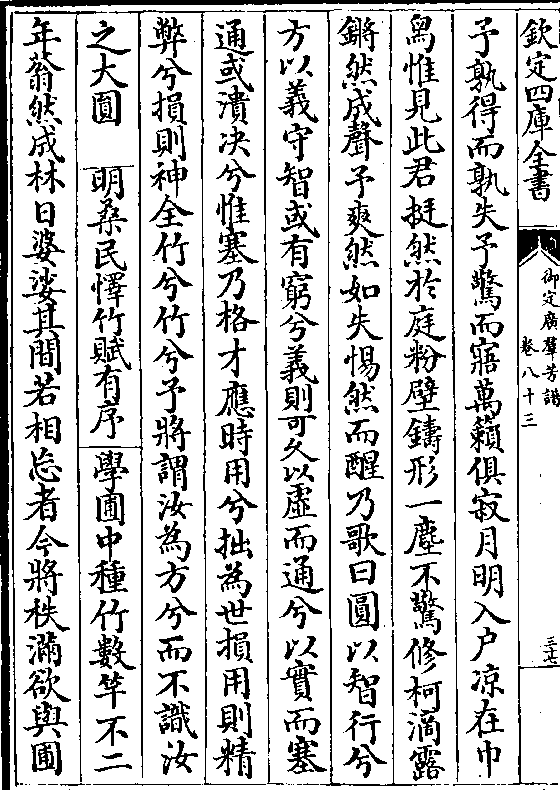 欽定四庫全書
御定廣羣芳譜
卷八十三
三十七
予孰得而孰失予驚而寤萬籟俱寂月明入户凉在巾
舄惟見此君挺然於庭粉壁鑄形一塵不驚修柯滴露
鏘然成聲予爽然如失惕然而醒乃歌曰圓以智行兮
方以義守智或有窮兮義則可久以虛而通兮以實而塞
通或潰决兮惟塞乃格才應時用兮拙為世損用則精
弊兮損則神全竹兮竹兮予將謂汝為方兮而不識汝
之大圓　明桑民懌竹賦有序　學圃中種竹數竿不二
年蓊然成林日婆娑其間若相忘者今將秩滿欲與圃